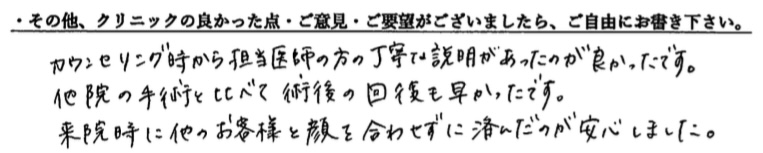 ・その他、クリニックの良かった点・ご意見・ご要望がございましたら、ご自由にお書き下さい。
カウンセリング時から担当医師の方の丁寧な説明があったのが良かったです。
他院の手術と比べて術後の回復も早かったです。
来院時に他のお客様と顔を合わせずに済んだのが安心しました。